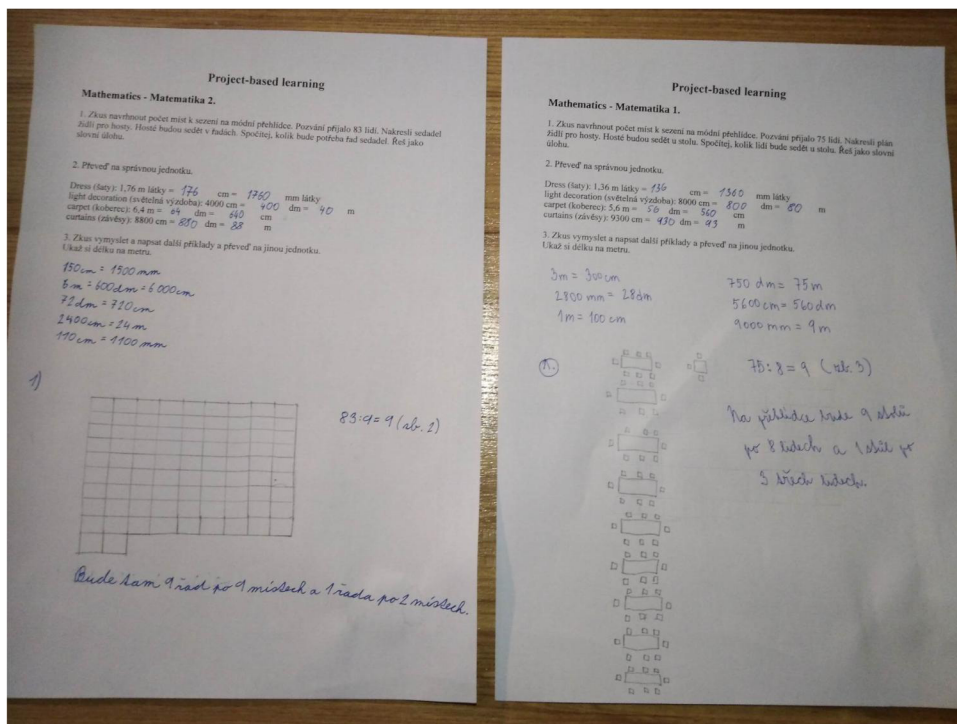 Project-based learning
Mathematics - Matematika 2.
1. Zkus navrhnout počet míst k sezení na módní přehlídce. Pozvání přijalo 83 lidí. Nakresli sedadel
židlí pro hosty. Hosté budou sedět v řadách. Spočítej, kolik bude potřeba řad sedadel. Řeš jako
slovní úlohu.
2. Převeď na správnou jednotku.
Dress (šaty): 1,76 m látky = 176 cm = 1760 mm látky
light decoration (světelná výzdoba): 4000 cm = 400 dm = 40 m
carpet (koberec): 6,4 m = 64 dm = 640 cm
curtains (závěsy): 8800 cm = 880 dm = 88 m
3. Zkus vymyslet a napsat další příklady a převeď na jinou jednotku.
Ukaž si délku na metru.
150 cm = 1500 mm
6 m = 600 dm = 6 000 cm
72 dm = 720 cm
2400 cm = 24 m
110 cm = 1100 mm
1)
83:9 = 9 (zb. 2)
Bude tam 9 řad po 9 místech a 1 řada po 2 místech.
Project-based learning
Mathematics - Matematika 1.
1. Zkus navrhnout počet míst k sezení na módní přehlídce. Pozvání přijalo 75 lidí. Nakresli plán
židlí pro hosty. Hosté budou sedět u stolu. Spočítej, kolik lidí bude sedět u stolu. Řeš jako slovní
úlohu.
2. Převeď na správnou jednotku.
Dress (šaty): 1,36 m látky = 136 cm = 1360 mm látky
light decoration (světelná výzdoba): 8000 cm = 800 dm = 80 m
carpet (koberec): 5,6 m = 56 dm = 560 cm
curtains (závěsy): 9300 cm = 930 dm = 93 m
3. Zkus vymyslet a napsat další příklady a převeď na jinou jednotku.
Ukaž si délku na metru.
3m = 300 cm
2800 mm = 28dm
1m = 100 cm
750 dm = 75 m
5600 cm = 560 dm
9000 mm = 9 m
75:8 = 9 (zb. 3)
Na přehlídce bude 9 stolů
po 8 lidech a 1 stůl po
3 třech lidech.